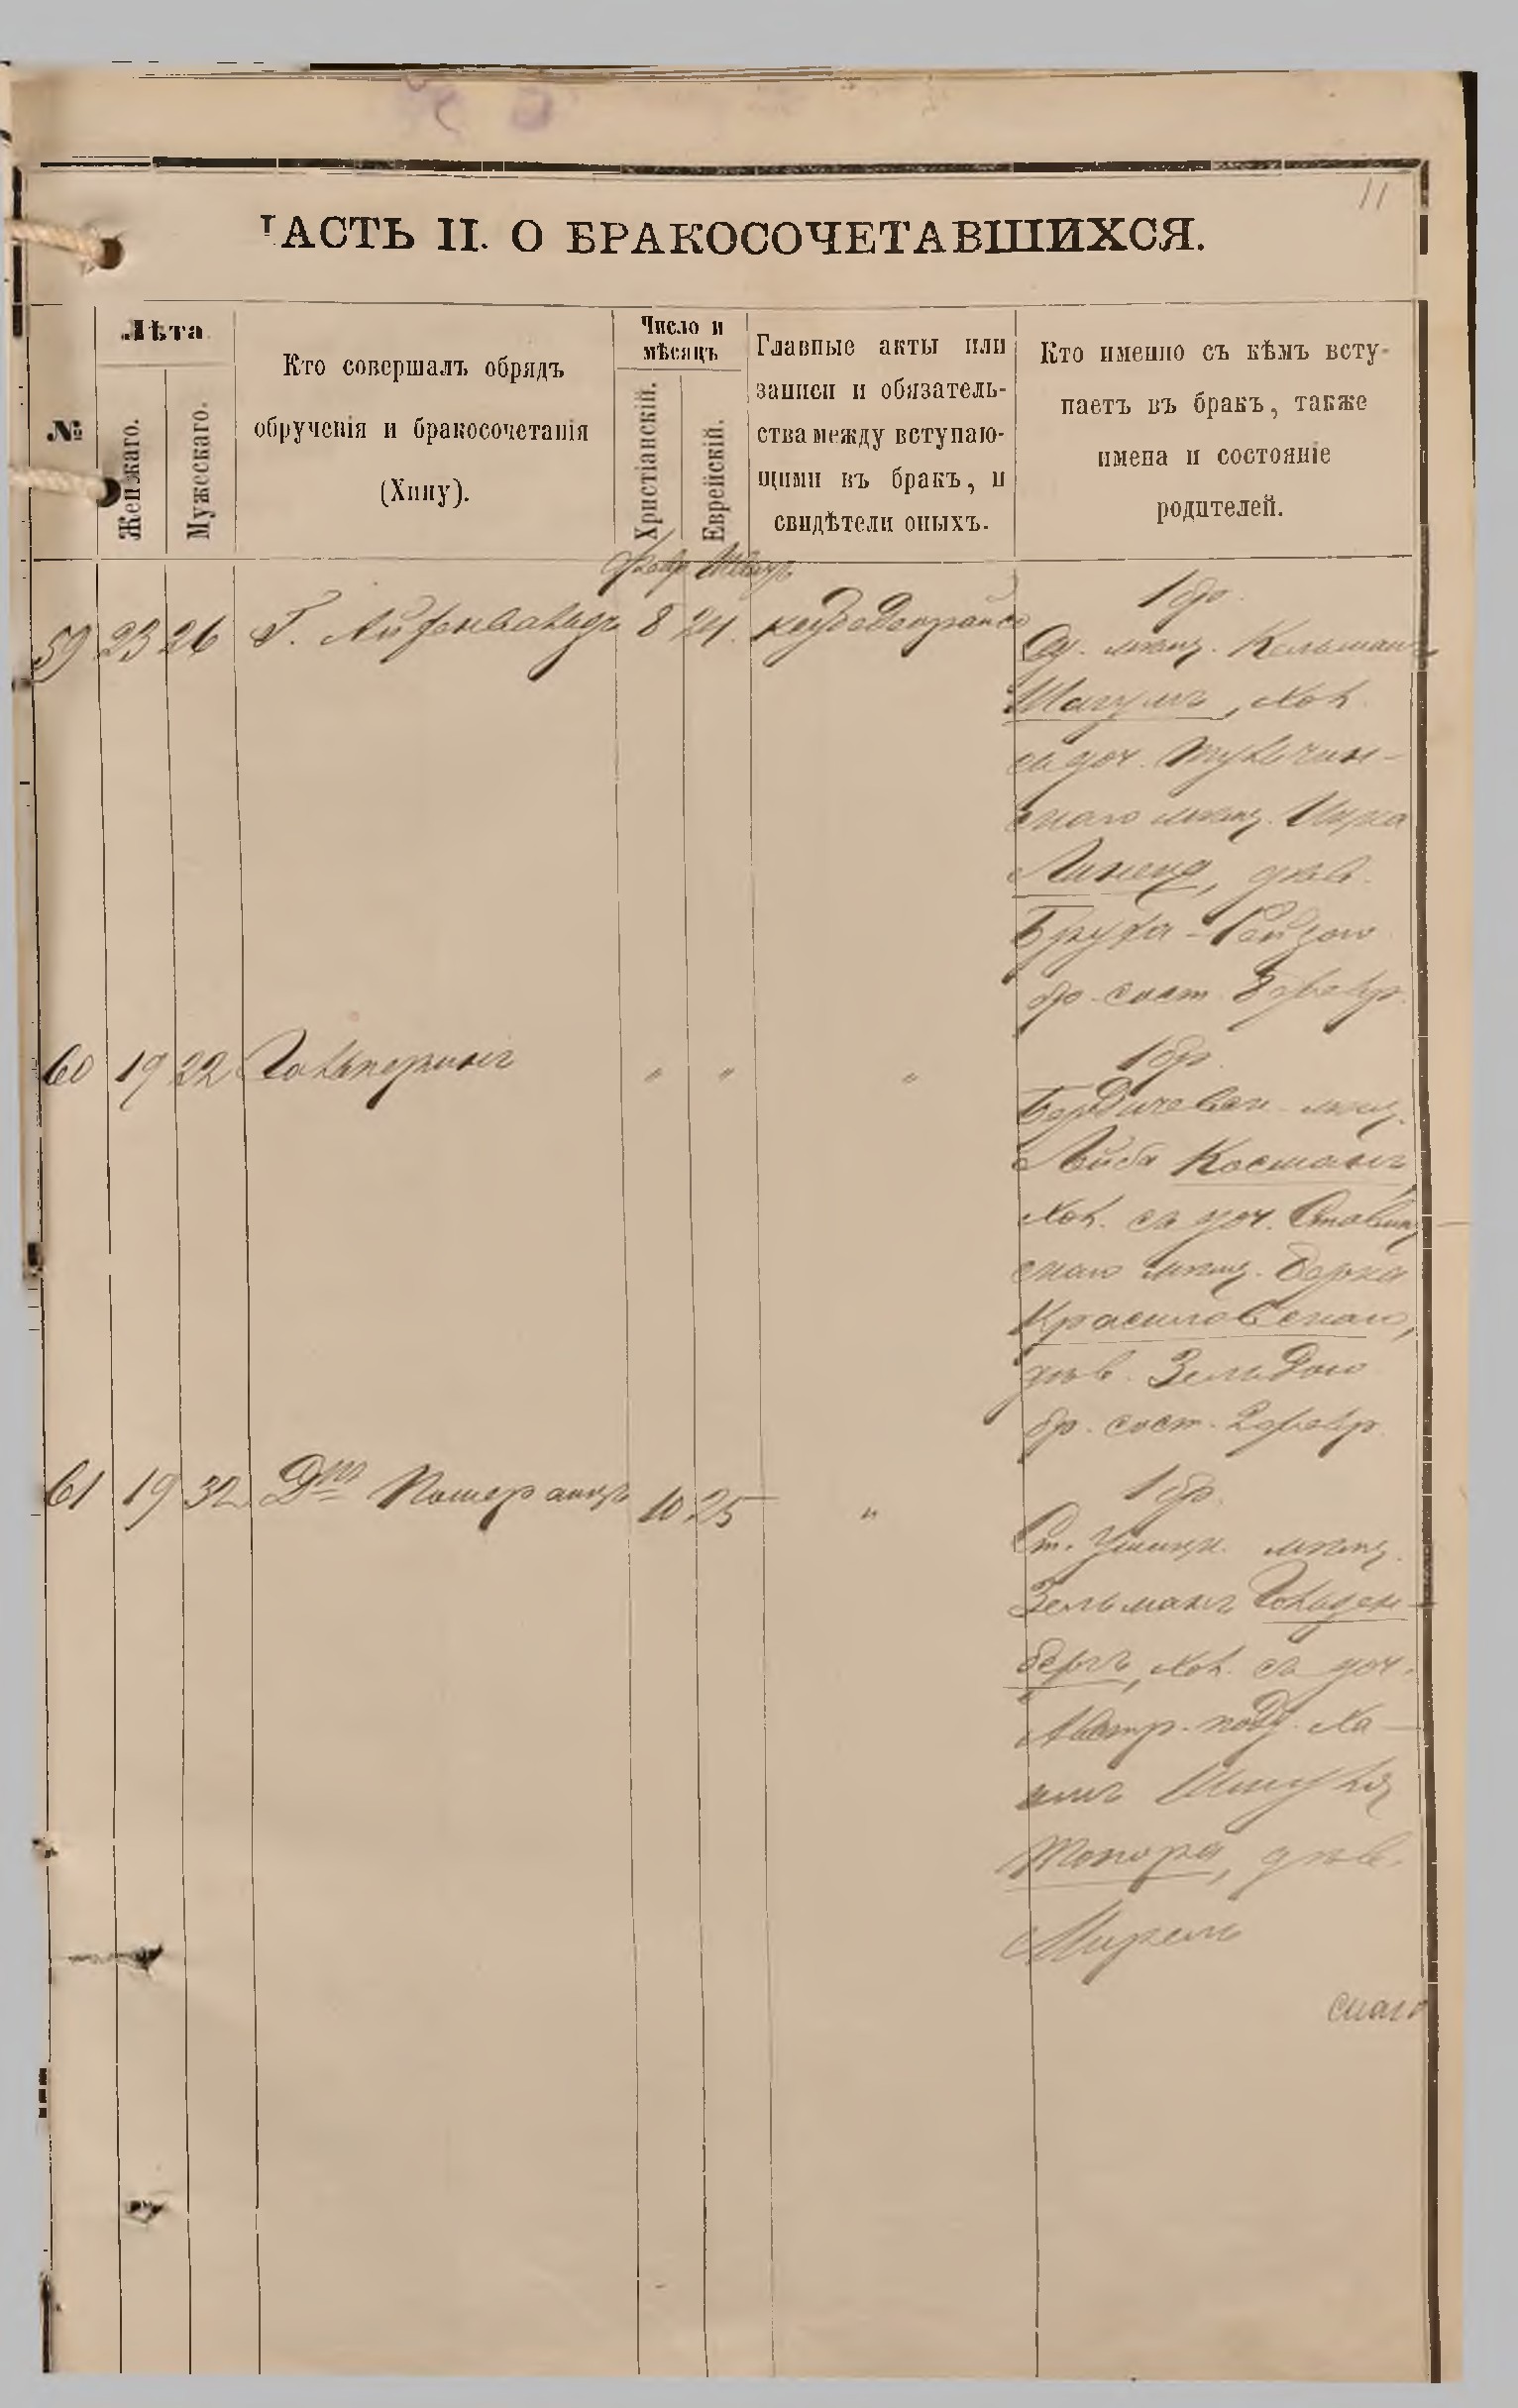 11
ЧАСТЬ II. О БРАКОСОЧЕТАВШИХСЯ.
№
Лѣта
Женскаго.
Мужескаго.
Кто совершалъ обрядъ
обрученія и бракосочетанія
(Хипу).
Число и
мѣсяцъ
Христіанскій.
Еврейскій.
Главные акты или
записи и обязатель-
ства между вступаю-
щими въ бракъ, и
свидѣтели оныхъ.
Кто именно съ кѣмъ всту-
паетъ въ бракъ, также
имена и состояніе
родителей.
Февр.
59 23 26 Г. Айзенвальдъ 8 24
1 бр.
Од. мѣщ. Кельманъ
Шагулъ, хол.
съ доч. Тульчин-
скаго мѣщ. Ицка
дѣв.
Бруха-Рейзою
бр. сост. 8 февр.
60 19 22 Гальперинъ " " "
1 бр.
Бердичевск. мѣщ.
Лейба Косманъ,
хол. съ доч. Ставищ-
скаго мѣщ. Берка
Красиловскаго,
дѣв. Зельдою
бр. сост. февр.
61 19 32 Померанцъ 10 25 "
1 бр.
Ст. Ушицк. мѣщ.
Зельманъ Гольден-
бергъ, хол. съ доч.
Австр. подд. Ха-
имъ Шмуля
Топора, дѣв.
Мирель
скаго